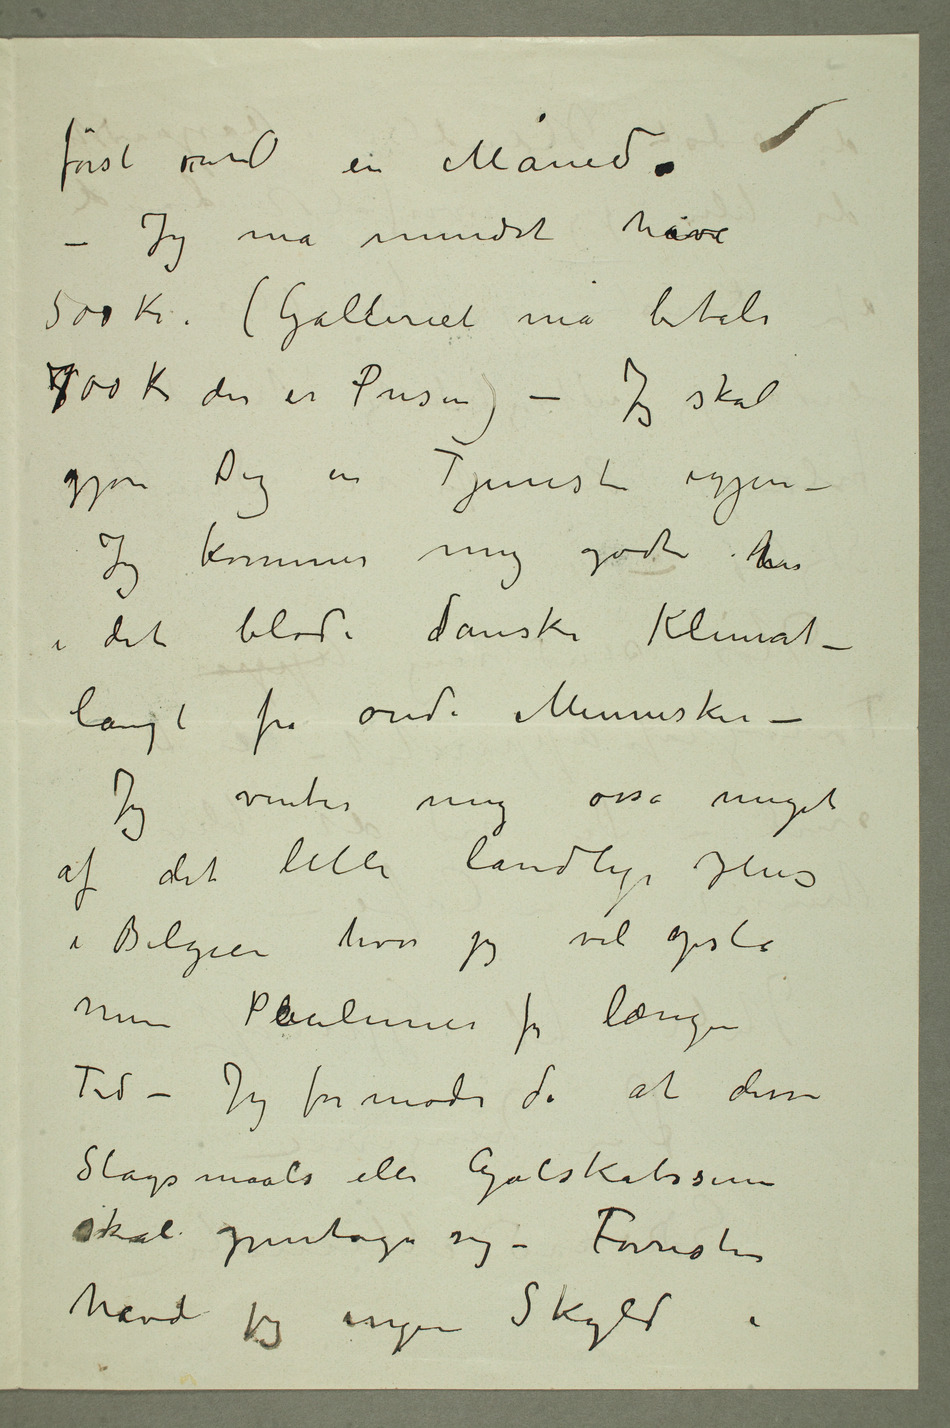 først om en Måned.
– Jeg må mindst have
500 Kr. (Galleriet må betale
700 Kr der er Prisen) – Jeg skal
gjøre Dig en Tjeneste igjen –
Jeg kommer mig godt her
i det bløde danske Klimat –
langt fra onde Mennesker –
Jeg venter mig osså meget
af det lille landlige Hus
i Belgien hvor jeg vil gjesta
min Paulines for længere
Tid – Jeg formoder da at disse
Slagsmaals eller Galskabsscener
skal gjentage sig – Forresten
havde jeg ingen Skyld i